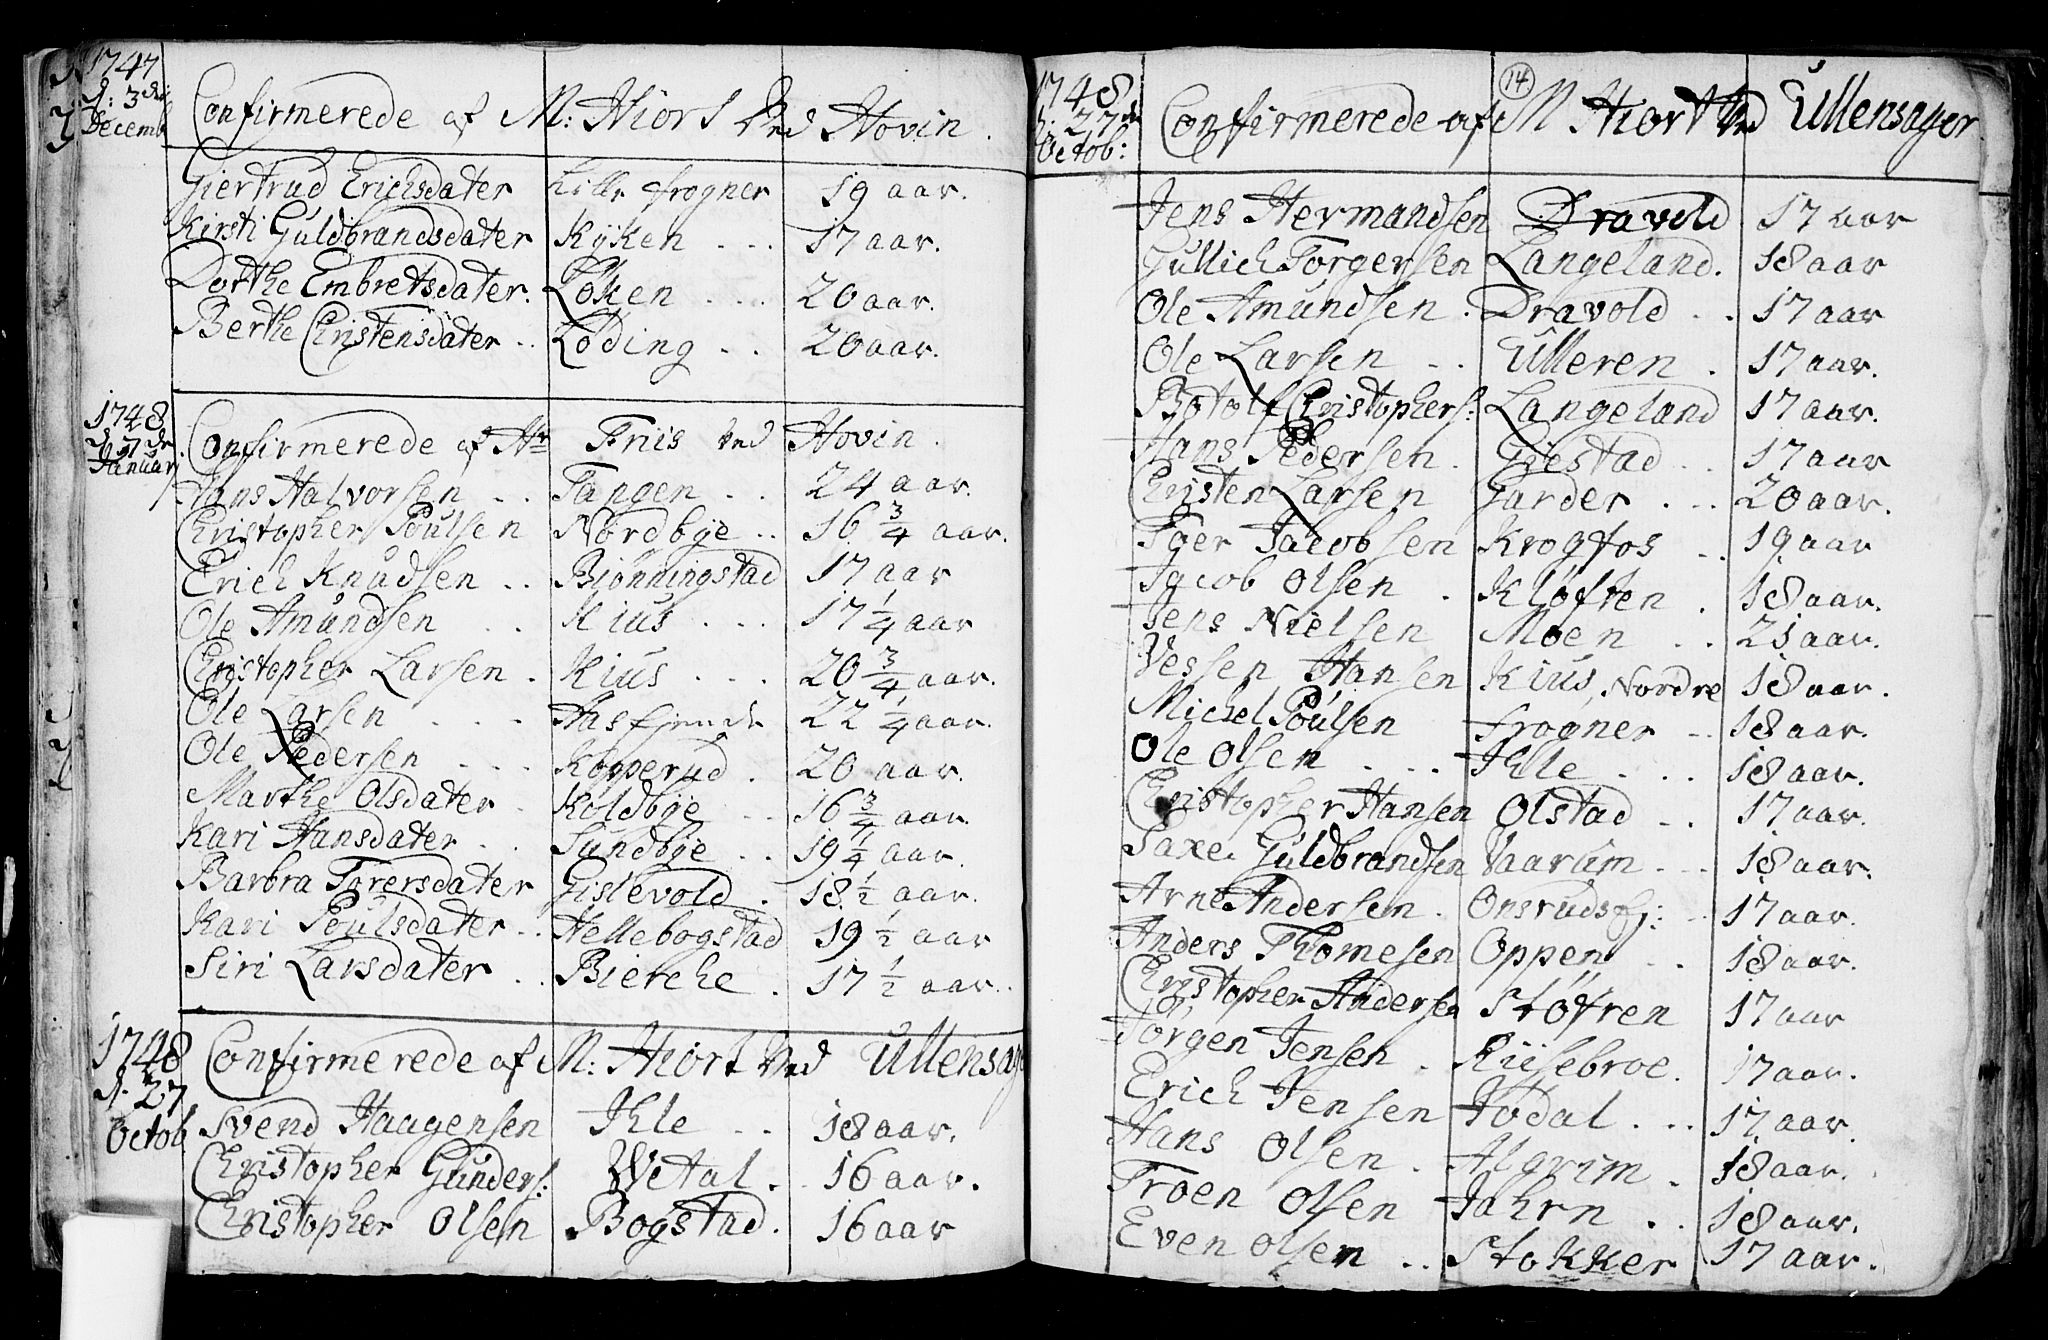 1747
d: 3die
Decemb
Confirmerede af M: Hiort Ved Hovin.
Giertrud Erichsdater Lille frogner 19 aar.
Kirsti Guldbrandsdater Kÿken ... 17 aar.
Dorthe Embretsdater. Løken ... 20 aar.
Berthe Christensdater .. Løding .. 20 aar.
1748
d 7de
Januarj
Confirmerede af Hr Friis ved Hovin.
Hans Halvorsen .. Tangen .. 24 aar.
Christopher Poulsen Nordbÿe .. 16 3/4 aar.
Erich Knudsen .. Biønningstad 17 aar
Ole Amundsen .. Kius ... 17 1/4 aar
Christopher Larsen . Kius ... 20 3/4 aar.
Ole Larsen ... Aasfjende 22 1/4 aar.
Ole Pedersen ... Kopperud . 20 aar.
Marthe Olsdater . Koldbÿe .. 16 3/4 aar.
Kari Hansdater .. Sundbÿe .. 19 1/4 aar.
Barbra Torersdater Gislevold . 18 1/2 aar.
Kari Poulsdater .. Hellebogstad 19 1/2 aar
Siri Larsdater .. Bierche . 17 1/2 aar.
1748
d. 27
Octob
Confirmerede af M: Hiort Ved Ullensag
Svend Haagensen Ihle .. 18 aar.
Christopher Gunders: Wetal .. 16 aar.
Christopher Olsen Bogstad. 16 aar
14
1748
d. 27de
Octob:
Confirmerede af M Hiort Ved Ullensager
Jens Hermandsen Dravold 17 aar
Gullich Torgersen Langeland. 18 aar
Ole Amundsen . Dravold .. 17 aar
Ole Larsen .. Ulleren . 17 aar.
Botolf Christophers: Langeland 17 aar.
Hans Pedersen . Giestad .. 17 aar
Christen Larsen Garder ... 20 aar.
Toer Jacobsen Krogfos .. 19 aar
Jacob Olsen . Kløften . 18 aar.
Jens Nielsen Moen .. 21 aar.
Vessen Hansen Kius Nordre 18 aar.
Michel Poulsen frogner .. 18 aar.
Ole Olsen ... Ihle ... 18 aar.
Christopher Hansen Olstad .. 17 aar.
Saxe Guldbrandsen Vaarum ... 18 aar.
Arne Andersen . Onsrudsej: .. 17 aar.
Anders Thomesen Oppen .. 18 aar.
Christopher Andersen Støfren 17 aar
Jørgen Jensen . Riisebroe. 17 aar.
Erich Jensen Jodal ... 17 aar.
Hans Olsen . Algrim . 18 aar.
Troen Olsen Jahrn .. 18 aar.
Even Olsen .. Stokker 17 aar.